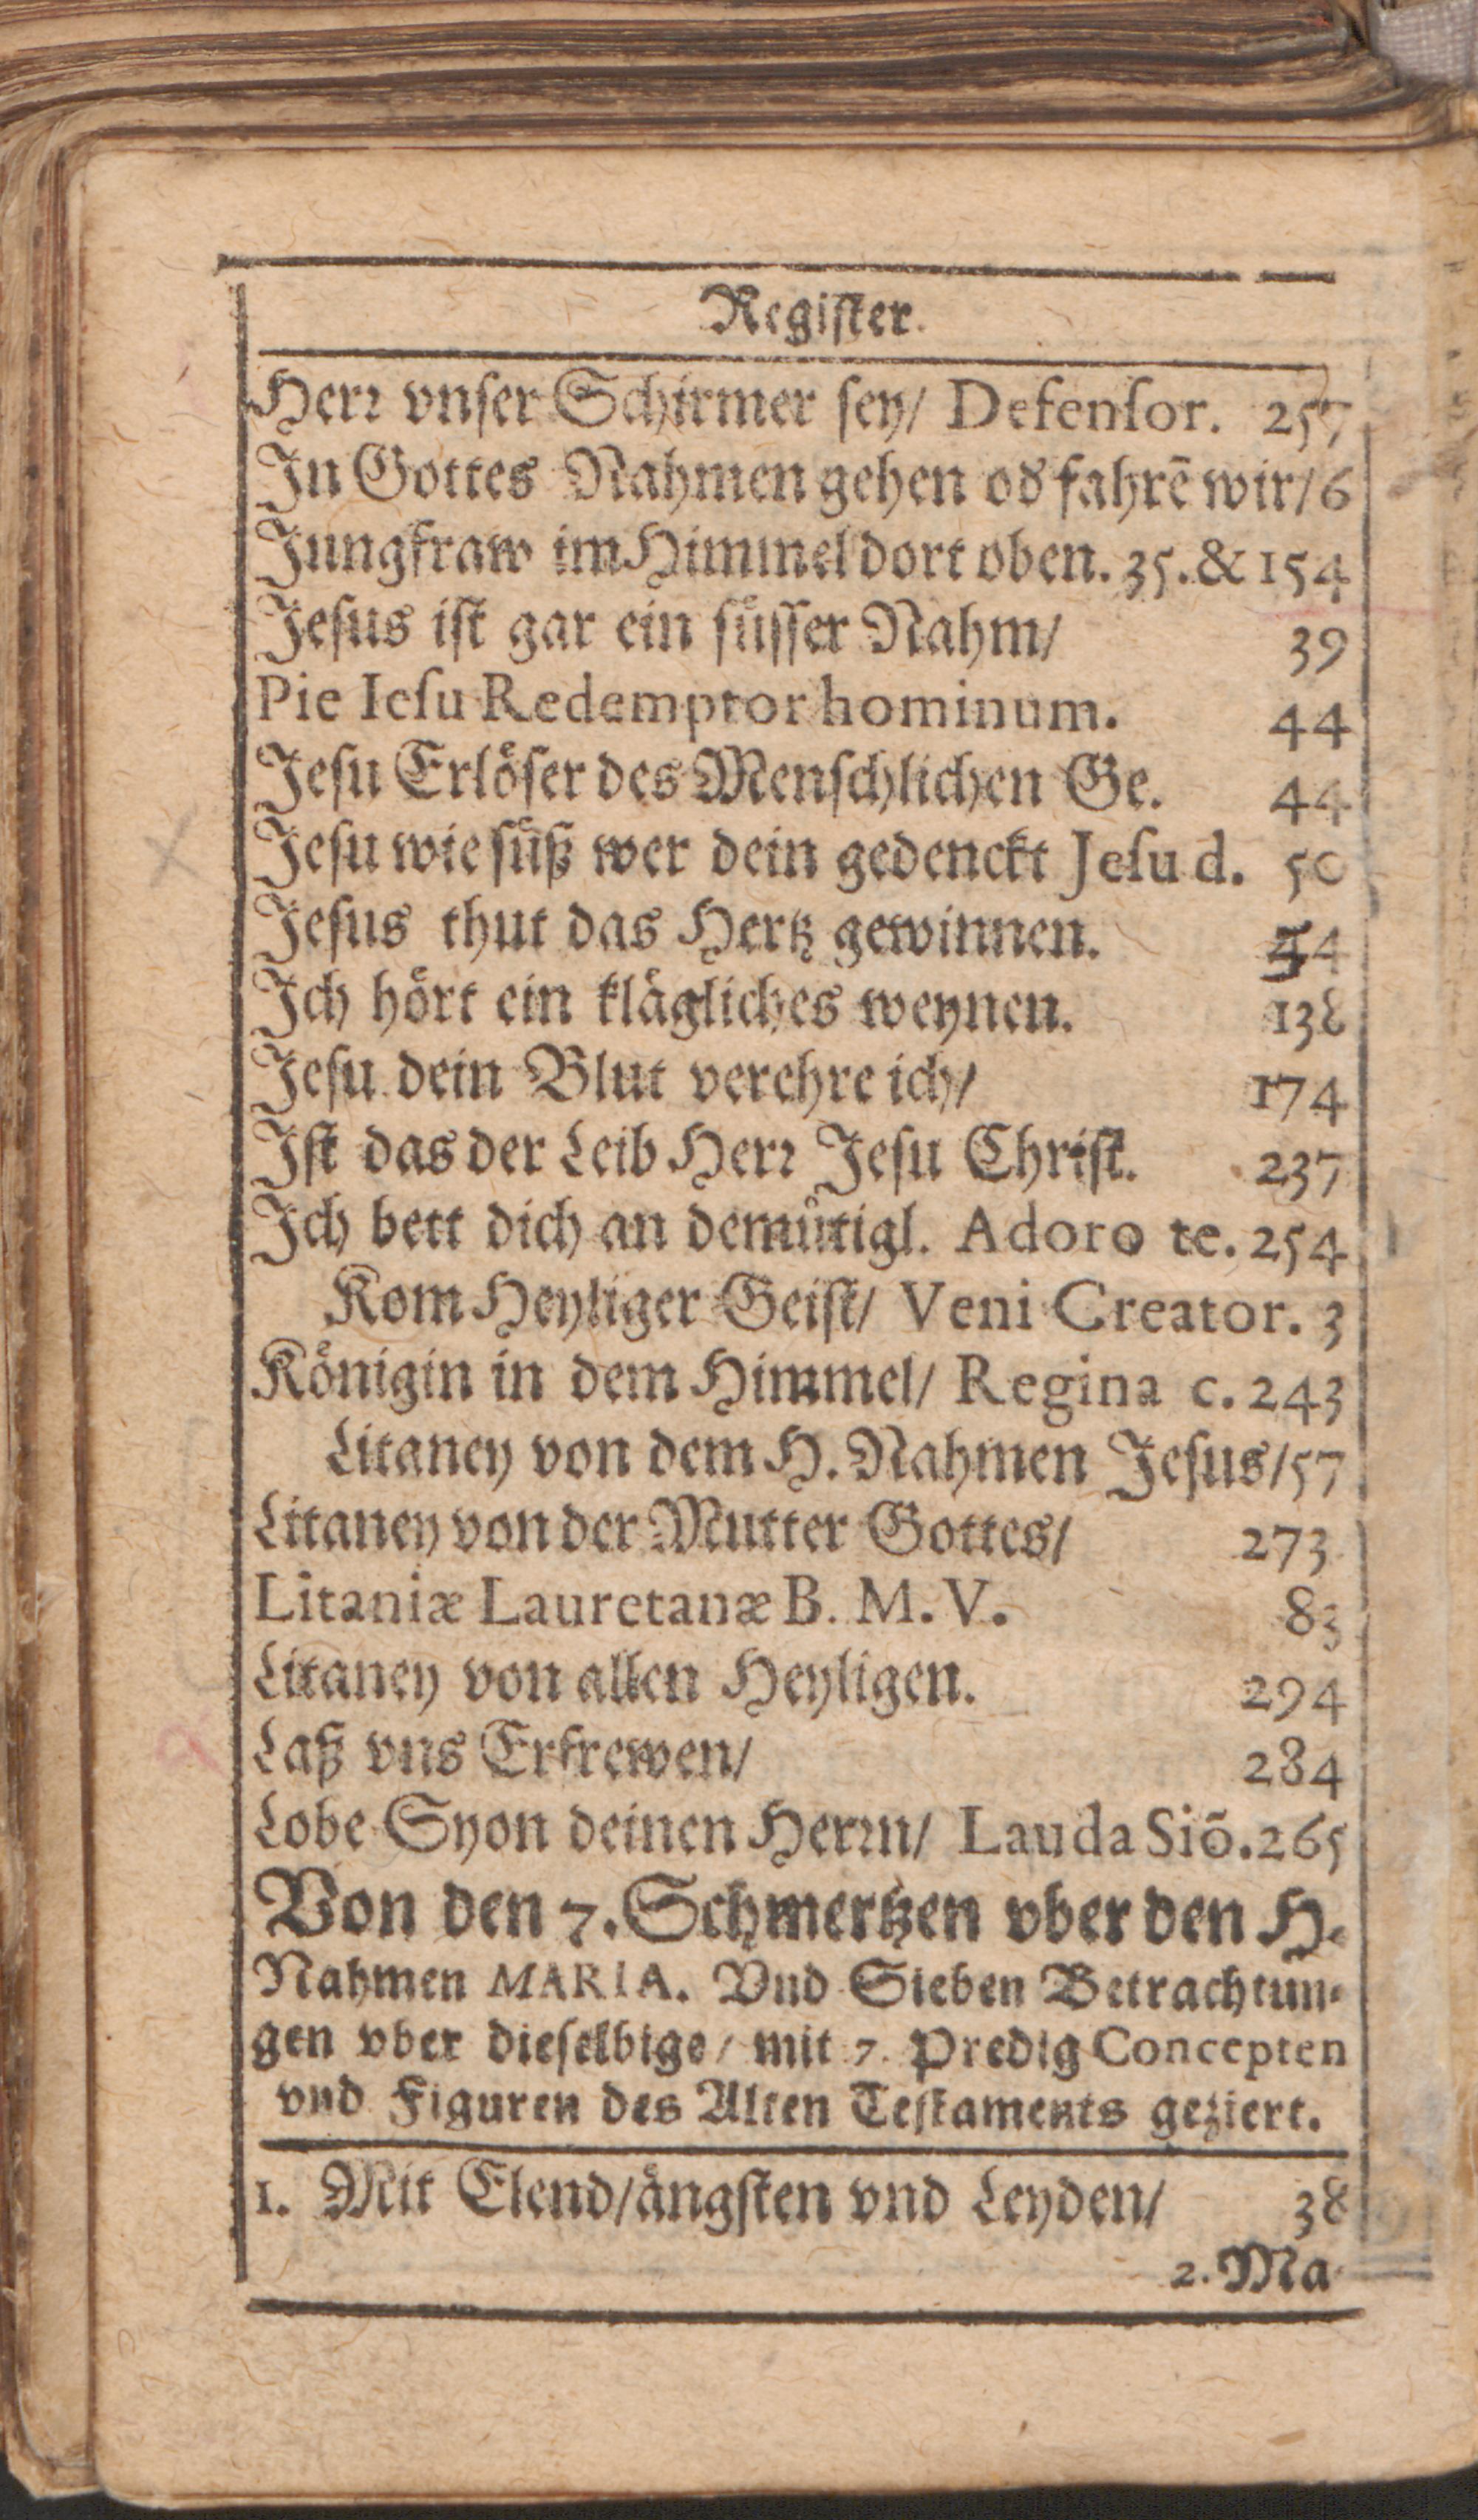 Regiſter.
Herꝛ vnſer Schirmer ſey/ Defenſor. 257
In Gottes Nahmen gehen od fahrē wir/ 6
Jungfraw im Himmel dort oben. 35. & 154
Jeſus iſt gar ein ſuͤſſer Nahm/ 39
Pie Ieſu Redemptor hominum. 44
Jeſu Erloͤſer des Menſchlichen Ge. 44
Jeſu wie ſuͤß wer dein gedenckt Jeſu d. 50
Jeſus thut das Hertz gewinnen. 54
Ich hoͤrt ein klaͤgliches weynen. 138
Jeſu dein Blut verehre ich/ 174
Iſt das der Leib Herꝛ Jeſu Chriſt. 237
Ich bett dich an demuͤtigl. Adoro te. 254
Kom Heyliger Geiſt/ Veni Creator. 3
Koͤnigin in dem Himmel/ Regina c. 243
Litaney von dem H. Nahmen Jeſus/ 57
Litaney von der Mutter Gottes/ 273
Litaniæ Lauretanæ B. M. V. 83
Litaney von allen Heyligen. 294
Laß vns Erfrewen/ 284
Lobe Syon deinen Herꝛn/ Lauda Siō. 265
Von den 7. Schmertzen vber den H.
Nahmen MARIA. Vnd Sieben Betrachtun-
gen vber dieſelbige/ mit 7. Predig Concepten
vnd Figuren des Alten Teſtaments geziert.
1. Mit Elend/ aͤngſten vnd Leyden/ 38
2. Ma